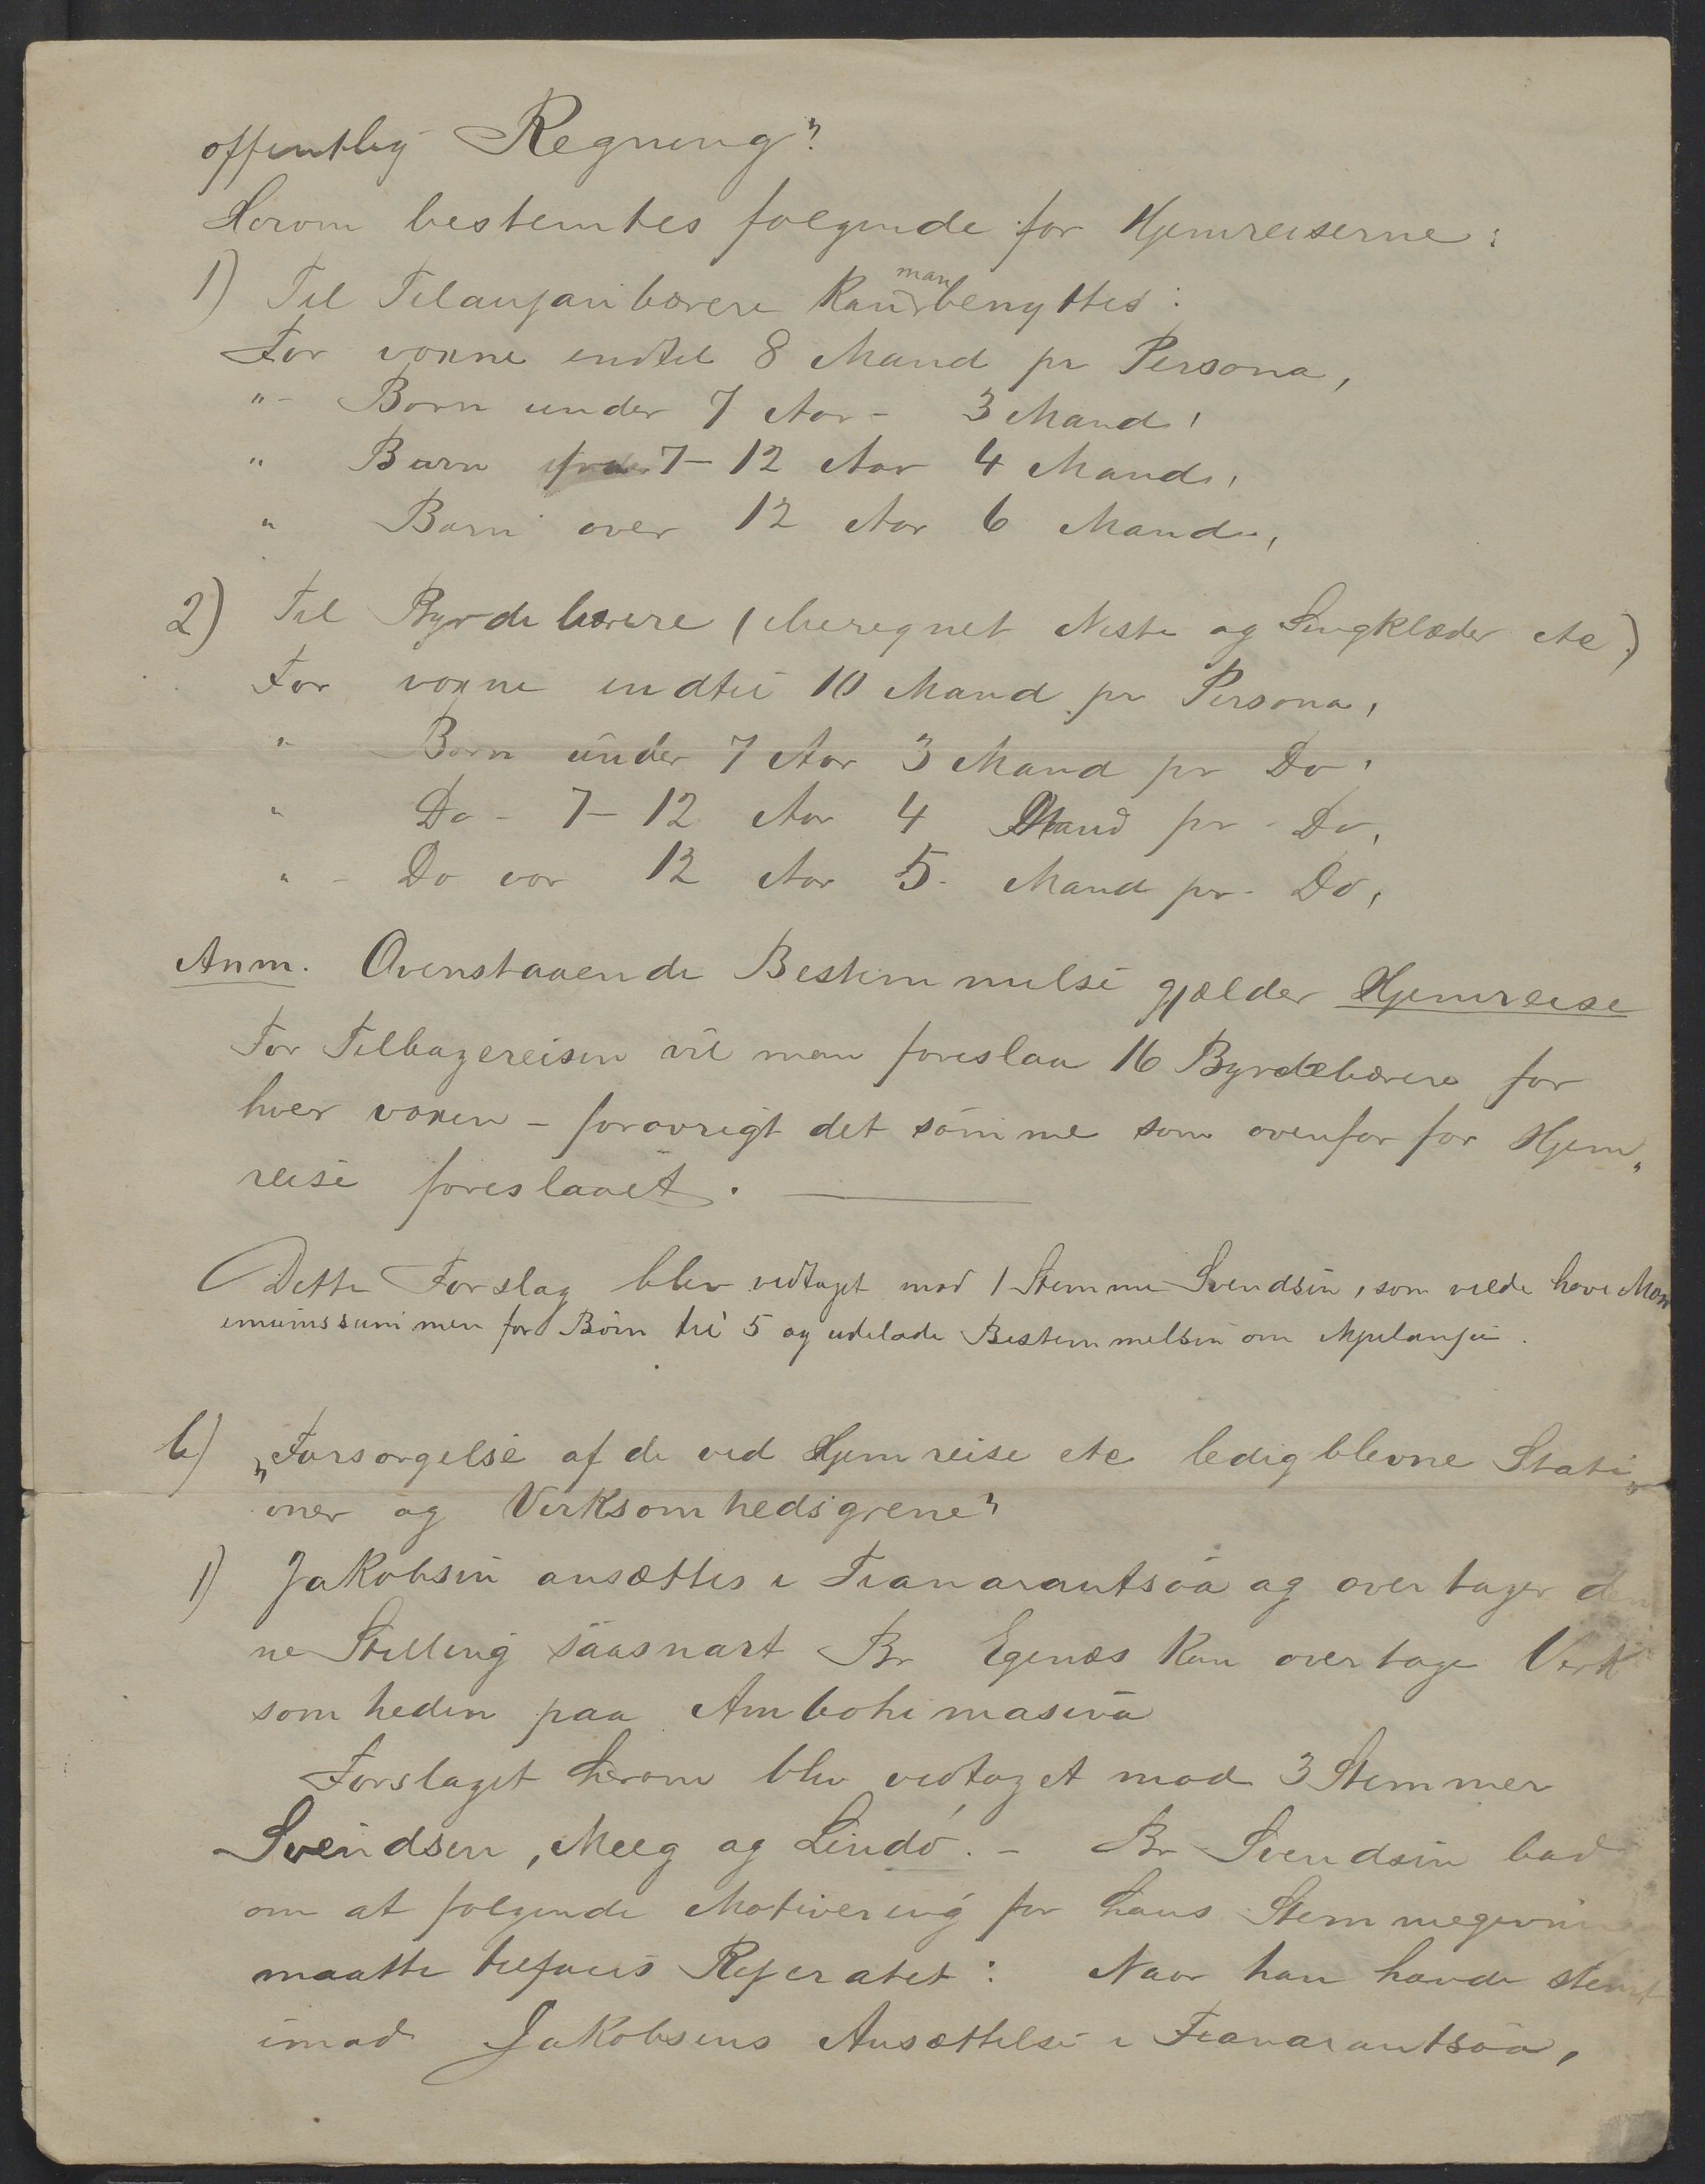 offentlig Regning"?
Herom bestemtes følgende for Hjemreiserne:
1) Til Filanjanbærere kan man benyttes:
For voxne indtil 8 Mand pr Persona,
" - Børn under 7 Aar - 3 Mand,
" Børn fra 7-12 Aar 4 Mand,
" Børn over 12 Aar 6 Mand,
2) Til Byrdebærere (iberegnet Niste og Sengklæder etc)
For voxne indtil 10 Mand pr Persona,
" Børn under 7 Aar 3 Mand pr Do,
" Do - 7-12 Aar 4 Mand pr - Do,
" - Do over 12 Aar 5 - Mand pr - Do,
Anm. Ovenstaaende Bestemmelse gjælder Hjemreise
For Tilbagereisen vil man foreslaa 16 Byrdebærere for
hver voxen - forøvrigt det samme som ovenfor for Hjem„
reise foreslaaet.
Dette Forslag blev vedtaget mod 1 Stemme Svendsen, som vilde have Max
imumssummen for Børn til 5 og udelade Bestemmelsen om
b) „Forsørgelse af de ved Hjemreise etc ledigblevne Stati„
oner og Virksomhedsgrene"
1) Jakobsen ansættes i Fianarantsoa og overtager den
ne Stilling saasnart Br Egenæs kan overtage Virk
somheden paa Ambohimasina
Forslaget herom blev vedtaget mod 3 Stemmer
Svendsen, Meeg og Lindø. - Br Svendsen bad
om at følgende Motivering for hans Stemmegivning
maatte tilføies Referatet: Naar han havde stemt
imod Jakobsens Ansættelse i Fianarantsoa,